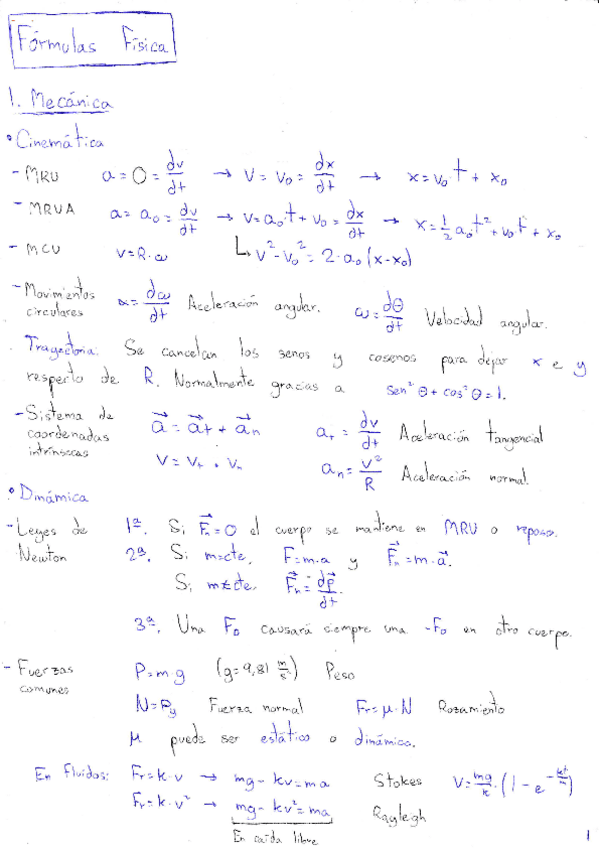 Fórmulas Física
1. Mecánica
• Cinemática
- MRU a = 0 = dv/dt → v = v₀ = dx/dt → x = v₀·t + x₀
- MRVA a = a₀ = dv/dt → v = a₀·t + v₀ = dx/dt → x = 1/2 a₀·t² + v₀·t + x₀
- MCU v = R·ω ↳ v² - v₀² = 2·a₀ (x - x₀)
- Movimientos circulares α = dω/dt Aceleración angular. ω = dθ/dt Velocidad angular.
Trayectoria: Se cancelan los senos y cosenos para dejar x e y
respecto de R. Normalmente gracias a sen²θ + cos²θ = 1.
- Sistema de coordenadas intrínsecas a⃗ = a⃗t + a⃗n at = dv/dt Aceleración tangencial
v = vt · vn an = v²/R Aceleración normal.
• Dinámica
- Leyes de Newton 1ª. Si F⃗n = 0 el cuerpo se mantiene en MRU o reposo.
2ª. Si m = cte. F = m·a y F⃗n = m·a⃗.
Si m ≠ cte. F⃗n = dp⃗/dt.
3ª. Una F₀ causará siempre una -F₀ en otro cuerpo.
- Fuerzas comunes P = m·g (g = 9,81 m/s²) Peso
N = Py Fuerza normal Fr = μ·N Rozamiento
μ puede ser estático o dinámico.
En fluidos: Fr = k·v → mg - kv = ma Stokes v = mg/k · (1 - e^(-kt/m))
Fr = k·v² → mg - kv² = ma Raylegh
En caída libre
1